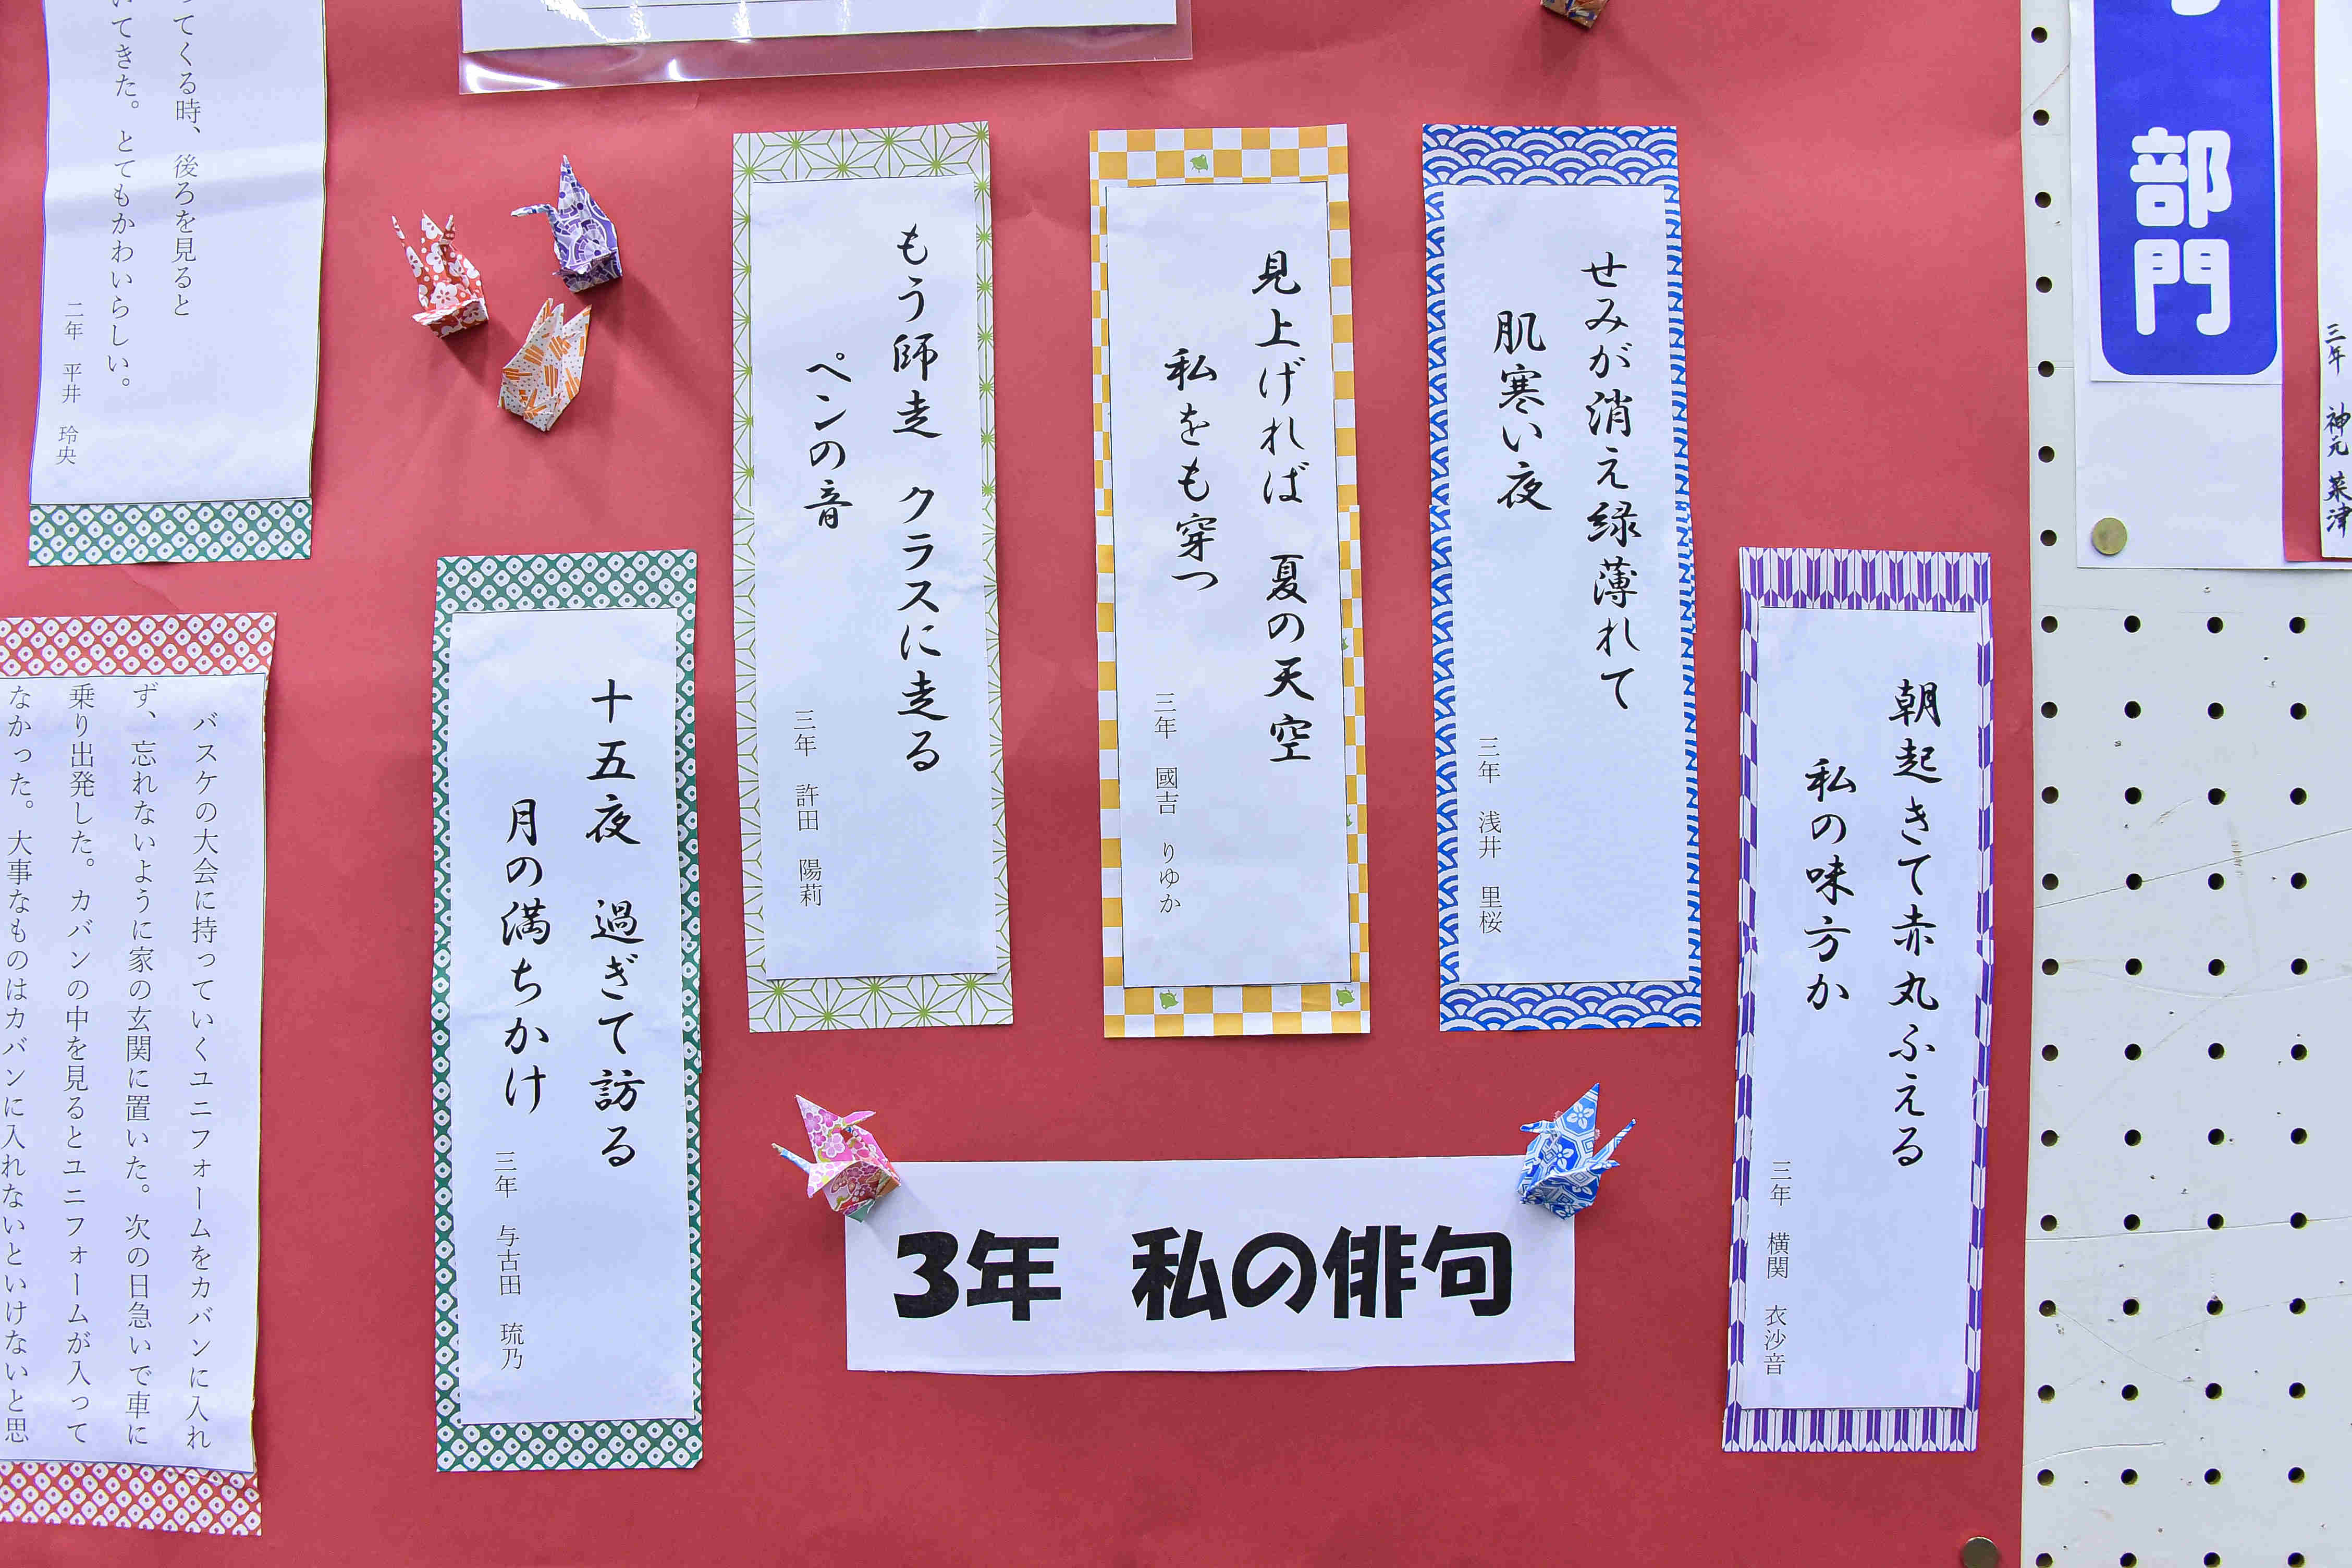 部門
三年 神元 菜津
朝起きて赤丸ふえる
私の味方か
三年 横関 衣沙音
せみが消え緑薄れて
肌寒い夜
三年 浅井 里桜
見上げれば 夏の天空
私をも穿つ
三年 國吉 りゆか
もう師走 クラスに走る
ペンの音
三年 許田 陽莉
十五夜 過ぎて訪る
月の満ちかけ
三年 与古田 琉乃
3年 私の俳句
ってくる時、後ろを見ると
いてきた。とてもかわいらしい。
二年 平井 玲央
バスケの大会に持っていくユニフォームをカバンに入れ
ず、忘れないように家の玄関に置いた。次の日急いで車に
乗り出発した。カバンの中を見るとユニフォームが入って
なかった。大事なものはカバンに入れないといけないと思